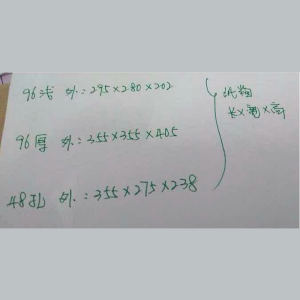 96浅 外:295×280×202
96厚 外:355×355×405
48孔 外:355×275×238
纸箱
长×宽×高